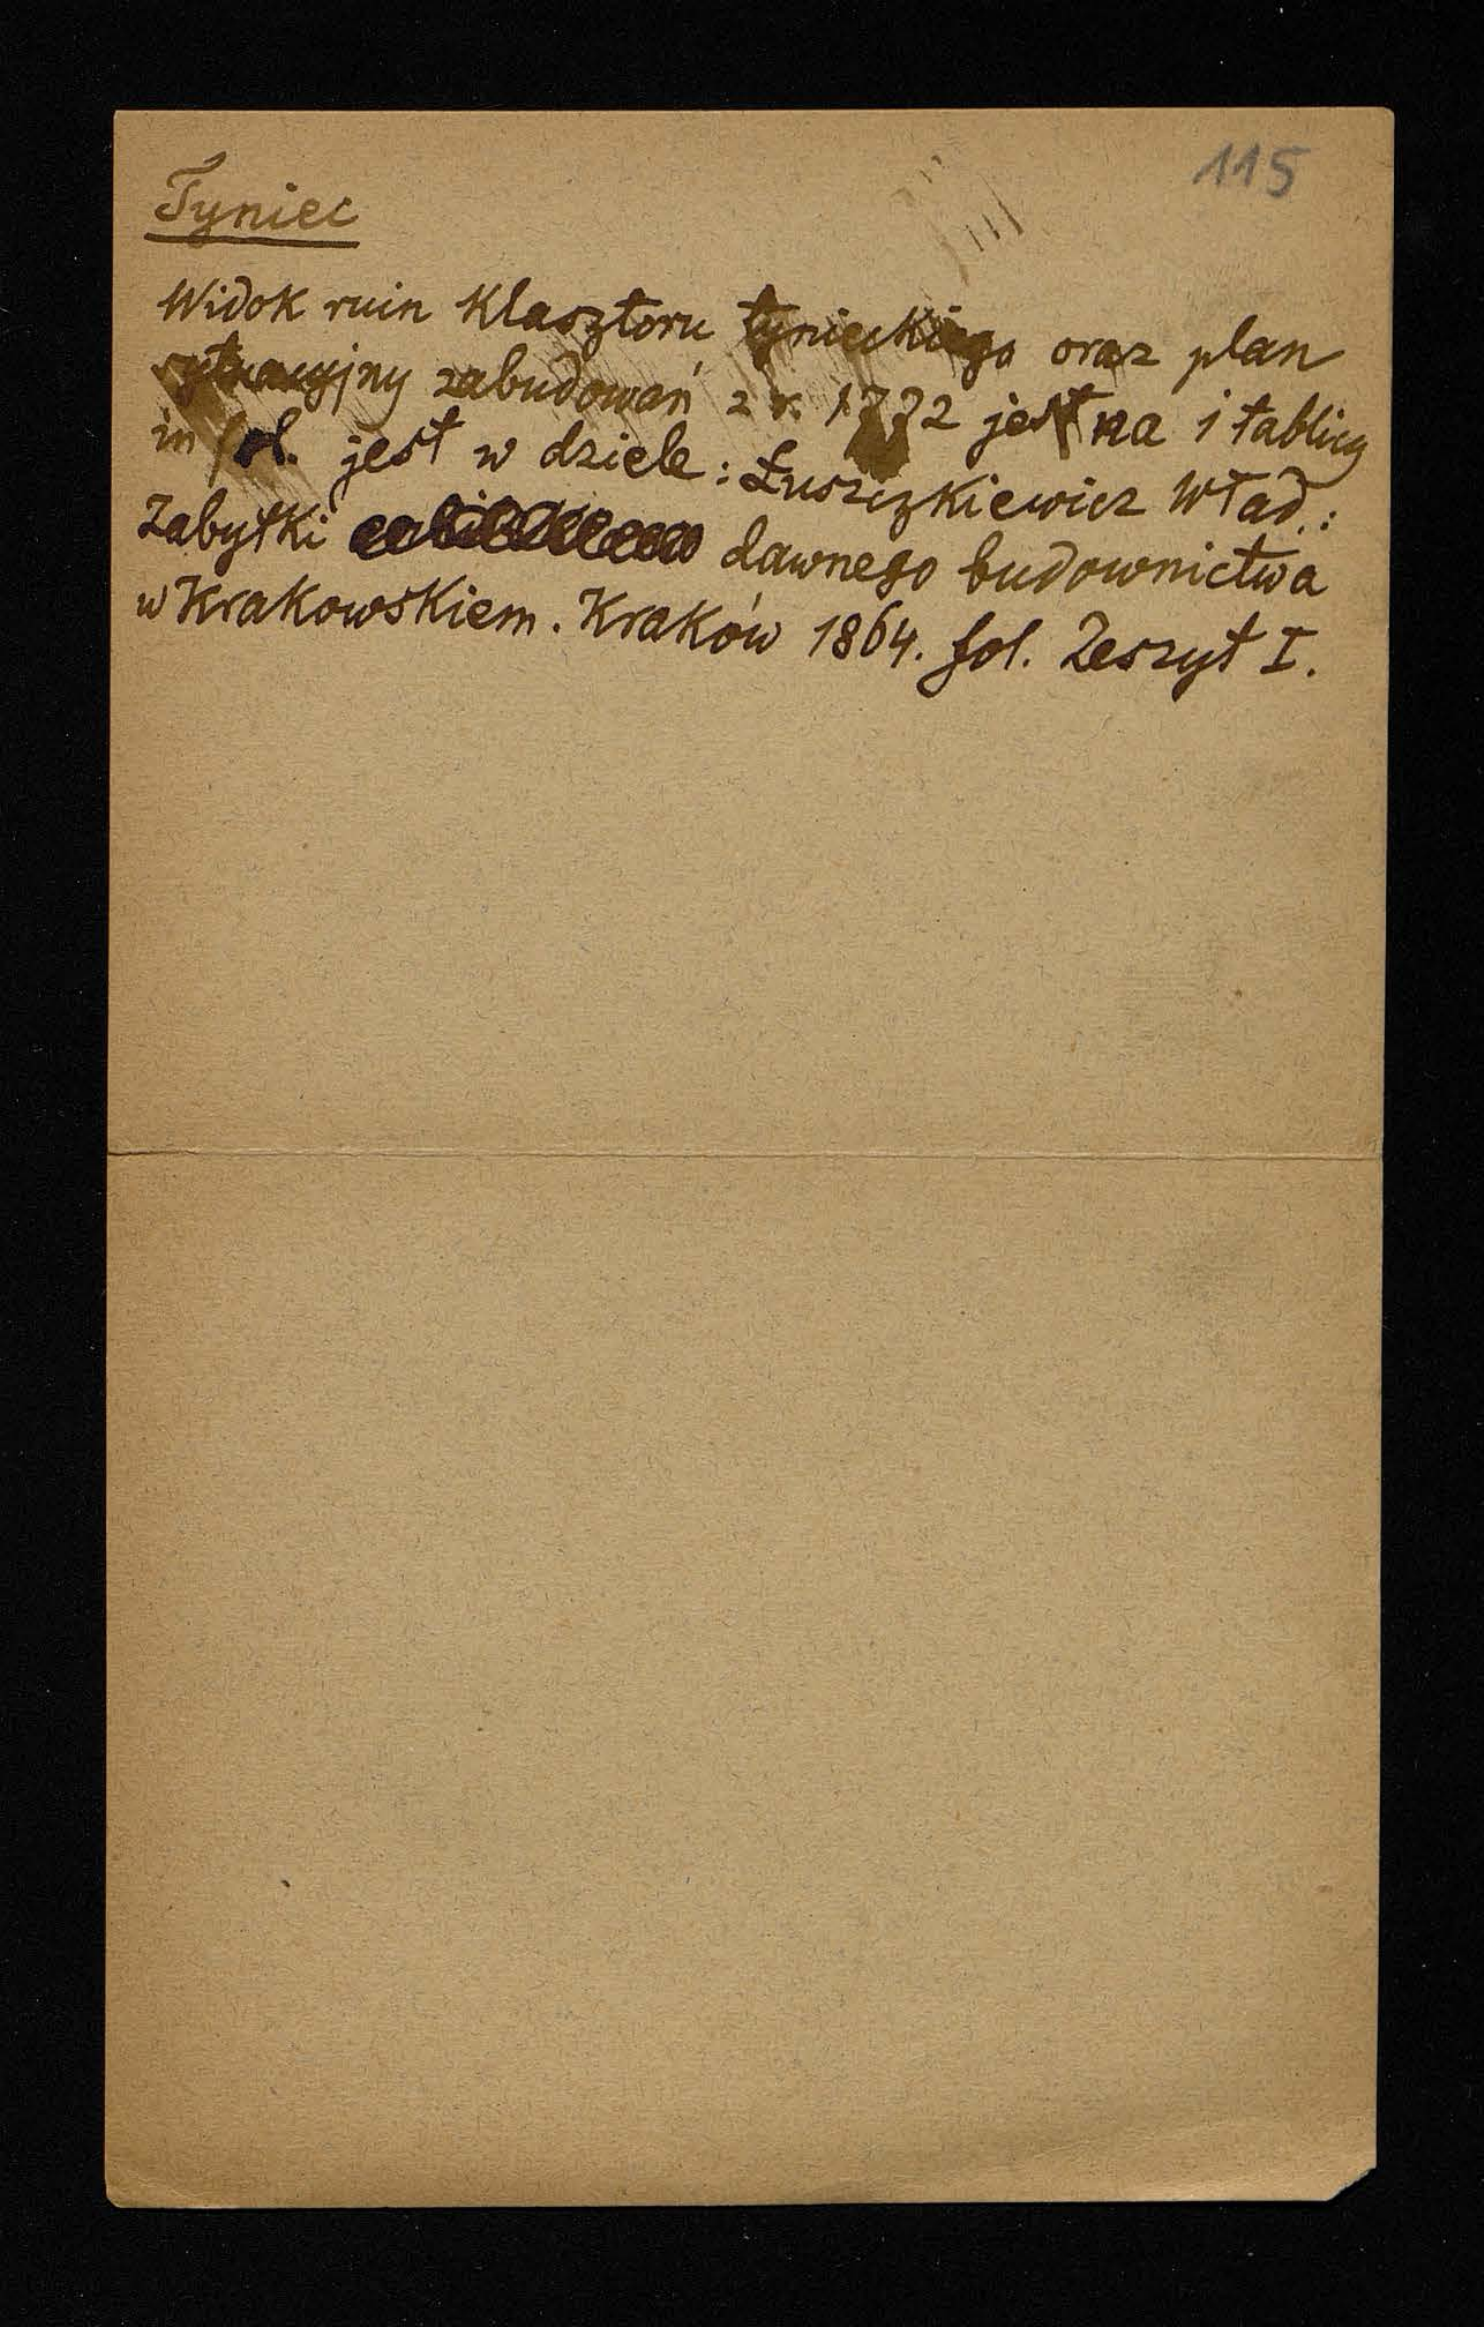 115
Tyniec
Widok ruin Klasztoru tynieckiego oraz plan
sytuacyjny zabudowań z r. 1772 jest na 1 tablicy
in fol. jest w dziele: Łuszczkiewicz Wład.:
Zabytki dawnego budownictwa
w Krakowskiem. Kraków 1864. fol. Zeszyt I.